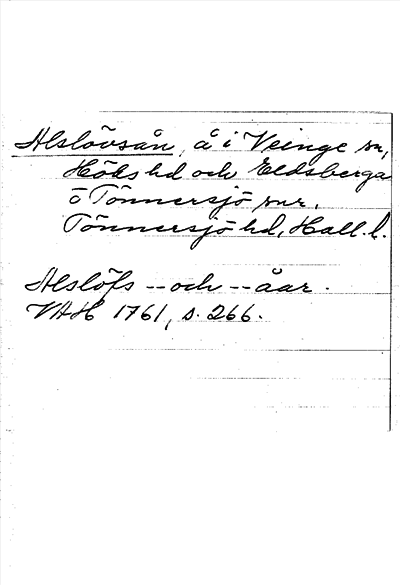 Alslövsån, å i Veinge sn,
Höks hd och Eldsberga
o Tönnersjö snr.
Tönnersjö hd, Hall. l.
Alslöfs -- och -- åar.
VAH 1761, s. 266.